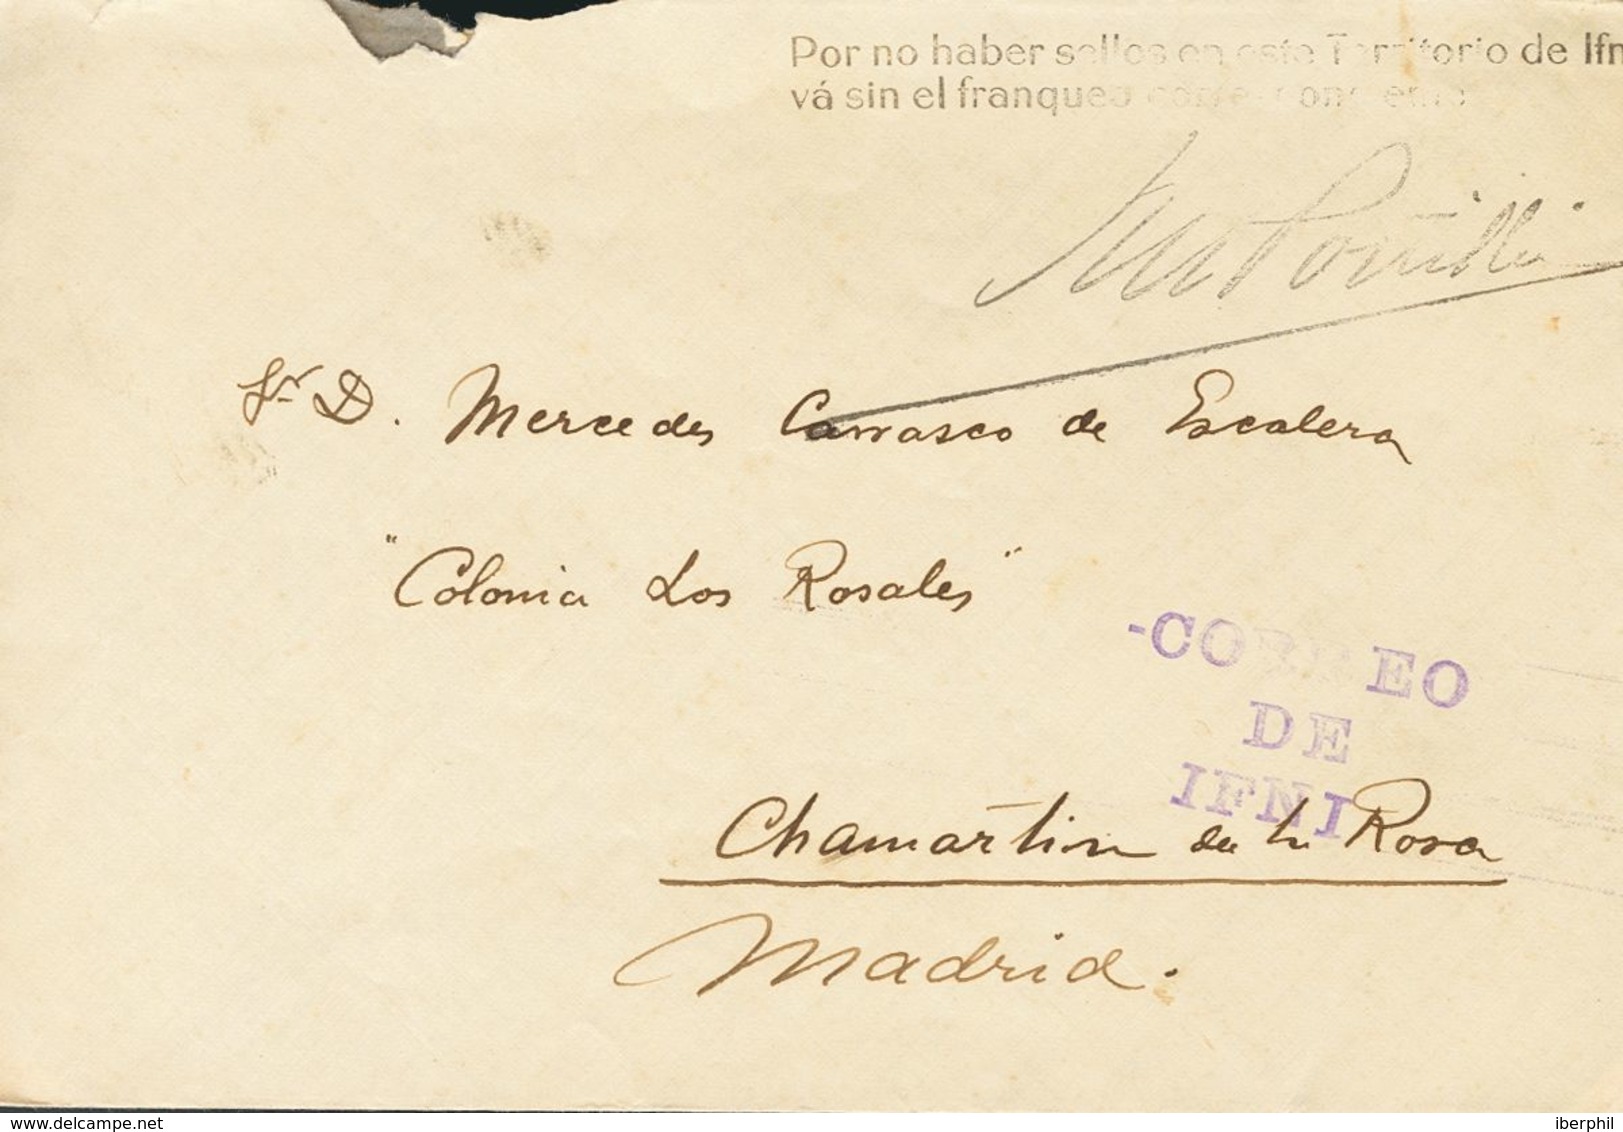 Por no haber sellos en este Territorio de Ifn
vá sin el franqueo correspondiente
Sr D. Mercedes Carrasco de Escalera
"Colonia Los Rosales"
-CORREO
DE
IFNI
Chamartin de la Rosa
Madrid.
delcampe.net
iberphil